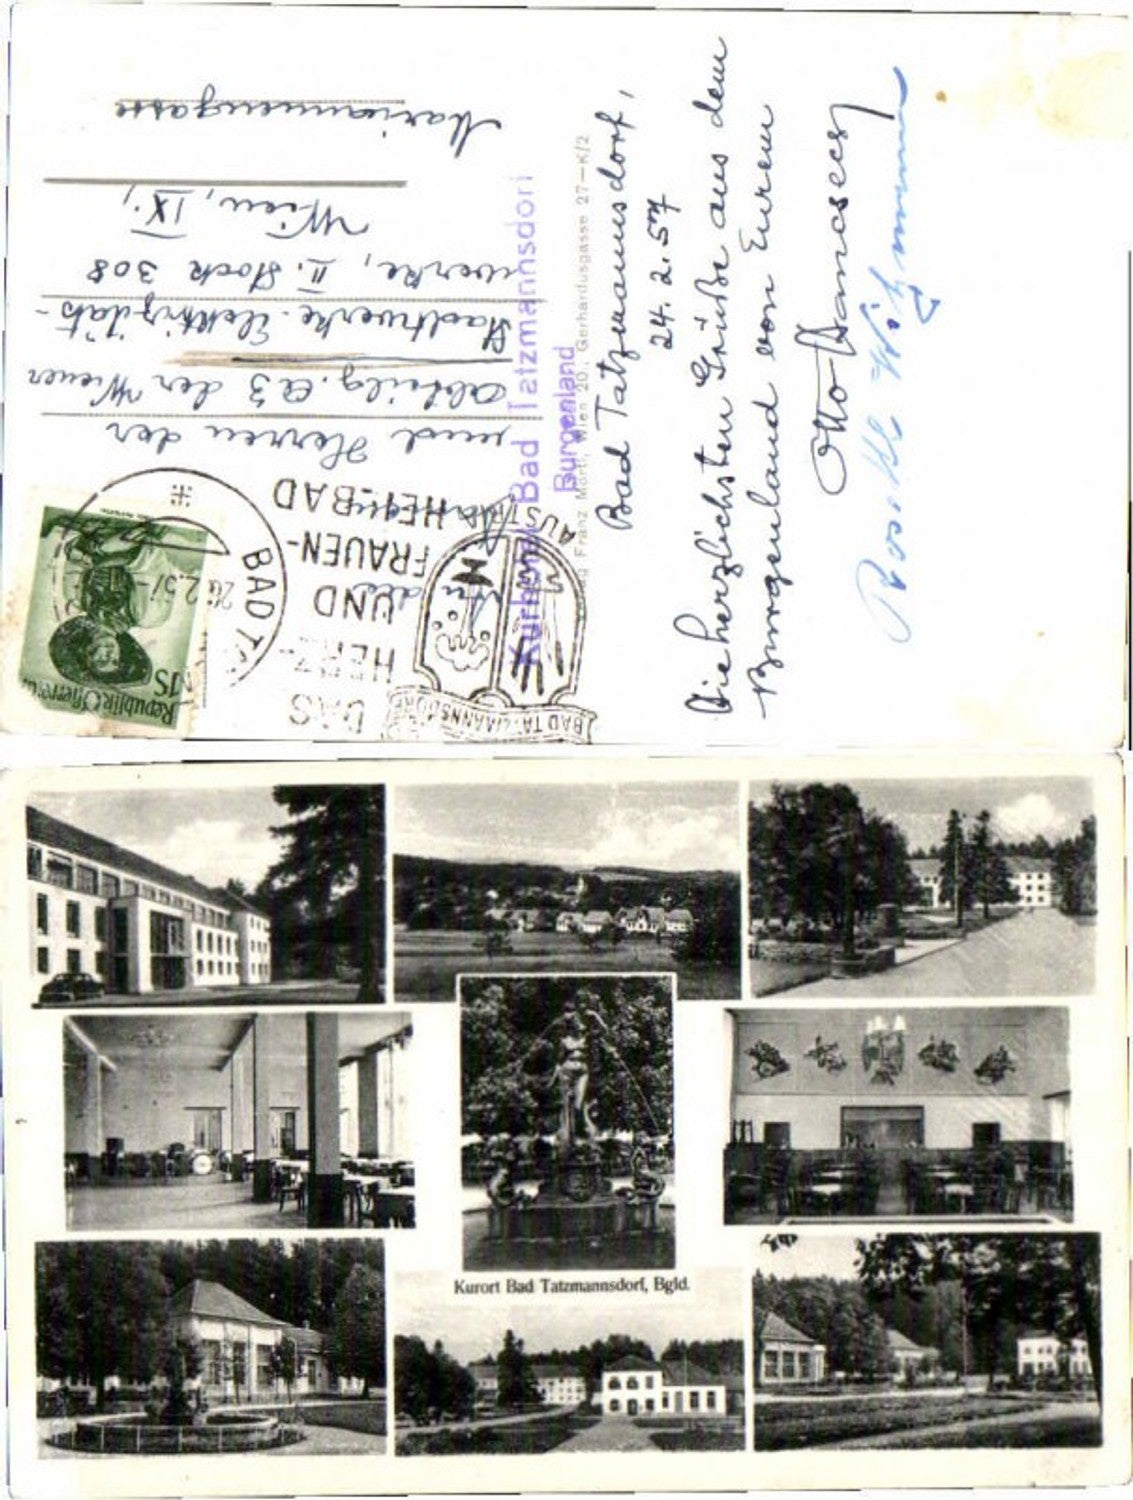 Bad Tatzmannsdorf,
24. 2. 57
Die herzlichsten Grüße aus dem
Burgenland von Eurem
Otto
Rosikl
Kurhotel Bad Tatzmannsdorf
Burgenland
Franz Mörtl, Wien 20., Gerhardusgasse 27—K/2
und Herren der
Abteilg. A3 der Wiener
Stadtwerke-Elektrizitäts-
werke, II. Stock 308
Wien, IX.,
Mariannengasse
Republik Österreich
1S
BAD TA
26.2.57
DAS
HERZ-
UND
FRAUEN-
HEILBAD
BAD TATZMANNSDORF
AUSTRIA
Kurort Bad Tatzmannsdorf, Bgld.